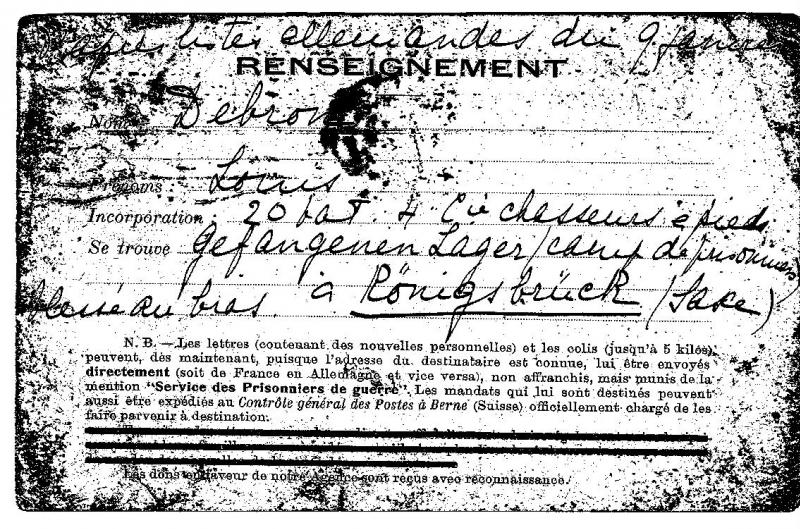 D'après listes allemandes du 9 janvier
RENSEIGNEMENT
Nom: Debron
Prénoms: Louis
Incorporation: 20 bat. 4 Cie chasseurs à pied
Se trouve Gefangenen Lager (camp de prisonniers)
blessé au bras. à Königsbrück (Saxe)
N. B. — Les lettres (contenant des nouvelles personnelles) et les colis (jusqu'à 5 kilos),
peuvent, dès maintenant, puisque l'adresse du destinataire est connue, lui être envoyés
directement (soit de France en Allemagne et vice versa), non affranchis, mais munis de la
mention "Service des Prisonniers de guerre". Les mandats qui lui sont destinés peuvent
aussi être expédiés au Contrôle général des Postes à Berne (Suisse) officiellement chargé de les
faire parvenir à destination.
Les dons en faveur de notre Agence sont reçus avec reconnaissance.